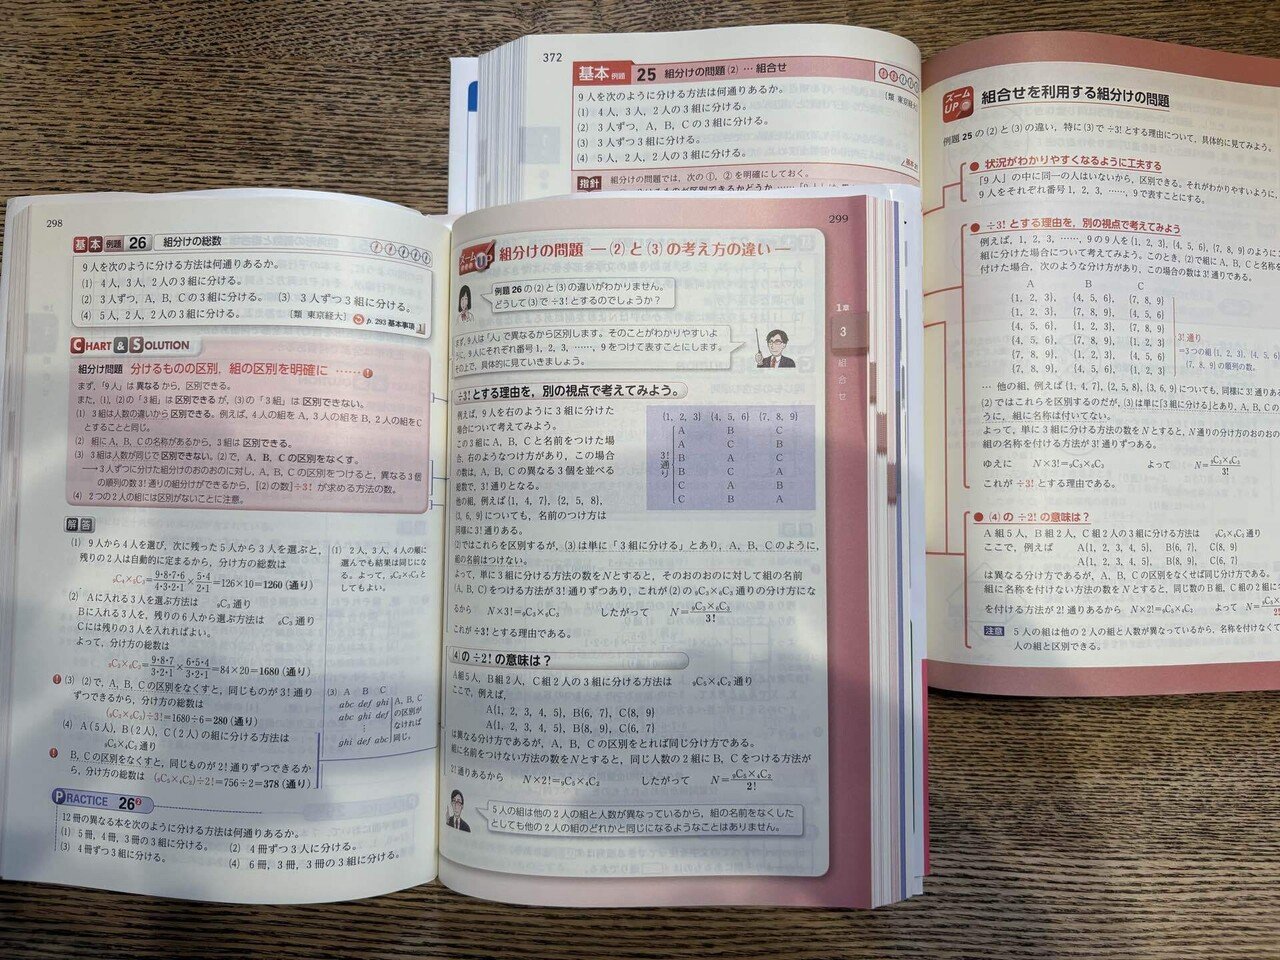 372
基本 例題 25 組分けの問題 (2) … 組合せ
9人を次のように分ける方法は何通りあるか。
(1) 4人，3人，2人の3組に分ける。
(2) 3人ずつ，A，B，Cの3組に分ける。
(3) 3人ずつ3組に分ける。
(4) 5人，2人，2人の3組に分ける。
〔類 東京経大〕
指針 組分けの問題では，次の①，②を明確にしておく。
ズームUP 組合せを利用する組分けの問題
例題25の(2)と(3)の違い，特に(3)で÷3!とする理由について，具体的に見てみよう。
● 状況がわかりやすくなるように工夫する
「9人」の中に同一の人はいないから，区別できる。それがわかりやすいように，
9人をそれぞれ番号1，2，3，……，9で表すことにする。
● ÷3!とする理由を，別の視点で考えてみよう
例えば，1，2，3，……，9の9人を{1，2，3}，{4，5，6}，{7，8，9}のように
組に分けた場合について考えてみよう。このとき，(2)で組にA，B，Cと名称を
付けた場合，次のような分け方があり，この場合の数は3!通りである。
A B C
{1，2，3}，{4，5，6}，{7，8，9}
{1，2，3}，{7，8，9}，{4，5，6}
{4，5，6}，{1，2，3}，{7，8，9}
{4，5，6}，{7，8，9}，{1，2，3}
{7，8，9}，{1，2，3}，{4，5，6}
{7，8，9}，{4，5，6}，{1，2，3}
3!通り
=3つの組{1，2，3}，{4，5，6}，
{7，8，9}の順列の数。
… 他の組，例えば{1，4，7}，{2，5，8}，{3，6，9}についても，同様に3!通りある
(2)ではこれらを区別するのだが，(3)は単に「3組に分ける」とあり，A，B，Cの
ように，組に名称は付いてない。
よって，単に3組に分ける方法の数をNとすると，N通りの分け方のおのおの
組の名称を付ける方法が3!通りずつある。
ゆえに N×3!=₉C₃×₆C₃ よって N=₉C₃×₆C₃/3!
これが÷3!とする理由である。
● (4)の÷2!の意味は？
A組5人，B組2人，C組2人の3組に分ける方法は ₉C₅×₄C₂通り
ここで，例えば A{1，2，3，4，5}，B{6，7}，C{8，9}
A{1，2，3，4，5}，B{8，9}，C{6，7}
は異なる分け方であるが，A，B，Cの区別をなくせば同じ分け方である。
組に名称を付けない方法の数をNとすると，同じ人数のB組，C組の2組に
を付ける方法が2!通りあるから N×2!=₉C₅×₄C₂ よって N=
注意 5人の組は他の2人の組と人数が異なっているから，名称を付けなくて
人の組と区別できる。
298
基本 例題 26 組分けの総数
9人を次のように分ける方法は何通りあるか。
(1) 4人，3人，2人の3組に分ける。
(2) 3人ずつ，A，B，Cの3組に分ける。 (3) 3人ずつ3組に分ける。
(4) 5人，2人，2人の3組に分ける。 〔類 東京経大〕 p.293 基本事項 1
CHART & SOLUTION
組分け問題 分けるものの区別，組の区別を明確に ……!
まず，「9人」は異なるから，区別できる。
また，(1)，(2)の「3組」は区別できるが，(3)の「3組」は区別できない。
(1) 3組は人数の違いから区別できる。例えば，4人の組をA，3人の組をB，2人の組をC
とすることと同じ。
(2) 組にA，B，Cの名称があるから，3組は区別できる。
(3) 3組は人数が同じで区別できない。(2)で，A，B，Cの区別をなくす。
→ 3人ずつに分けた組分けのおのおのに対し，A，B，Cの区別をつけると，異なる3個
の順列の数3!通りの組分けができるから，[(2)の数]÷3! が求める方法の数。
(4) 2つの2人の組には区別がないことに注意。
解答
(1) 9人から4人を選び，次に残った5人から3人を選ぶと，
残りの2人は自動的に定まるから，分け方の総数は
₉C₄×₅C₃=9・8・7・6/4・3・2・1×5・4/2・1=126×10=1260(通り)
(2) Aに入れる3人を選ぶ方法は ₉C₃通り
Bに入れる3人を，残りの6人から選ぶ方法は ₆C₃通り
Cには残りの3人を入れればよい。
よって，分け方の総数は
₉C₃×₆C₃=9・8・7/3・2・1×6・5・4/3・2・1=84×20=1680(通り)
! (3) (2)で，A，B，Cの区別をなくすと，同じものが3!通り
ずつできるから，分け方の総数は
(₉C₃×₆C₃)÷3!=1680÷6=280(通り)
(4) A(5人)，B(2人)，C(2人)の組に分ける方法は
₉C₅×₄C₂通り
! B，Cの区別をなくすと，同じものが2!通りずつできるか
ら，分け方の総数は (₉C₅×₄C₂)÷2!=756÷2=378(通り)
(1) 2人，3人，4人の順に
選んでも結果は同じにな
る。よって，₉C₂×₇C₃と
してもよい。
(3) A B C
abc def ghi
abc ghi def
ghi def abc
A，B，C
の区別が
なければ
同じ。
PRACTICE 26②
12冊の異なる本を次のように分ける方法は何通りあるか。
(1) 5冊，4冊，3冊の3組に分ける。 (2) 4冊ずつ3人に分ける。
(3) 4冊ずつ3組に分ける。 (4) 6冊，3冊，3冊の3組に分ける。
299
ズームUP 組分けの問題 ―(2)と(3)の考え方の違い―
例題26の(2)と(3)の違いがわかりません。
どうして(3)で÷3!とするのでしょうか？
まず，9人は「人」で異なるから区別します。そのことがわかりやすいよ
うに，9人にそれぞれ番号1，2，3，……，9をつけて表すことにします。
その上で，具体的に見ていきましょう。
÷3!とする理由を，別の視点で考えてみよう。
例えば，9人を右のように3組に分けた
場合について考えてみよう。
この3組にA，B，Cと名前をつけた場
合，右のようなつけ方があり，この場合
の数は，A，B，Cの異なる3個を並べる
総数で，3!通りとなる。
他の組，例えば{1，4，7}，{2，5，8}，
{3，6，9}についても，名前のつけ方は
同様に3!通りある。
{1，2，3} {4，5，6} {7，8，9}
3!通り
A B C
A C B
B A C
B C A
C A B
C B A
(2)ではこれらを区別するが，(3)は単に「3組に分ける」とあり，A，B，Cのように，
組の名前はつけない。
よって，単に3組に分ける方法の数をNとすると，そのおのおのに対して組の名前
(A，B，C)をつける方法が3!通りずつあり，これが(2)の₉C₃×₆C₃通りの分け方にな
るから N×3!=₉C₃×₆C₃ したがって N=₉C₃×₆C₃/3!
これが÷3!とする理由である。
(4)の÷2!の意味は？
A組5人，B組2人，C組2人の3組に分ける方法は ₉C₅×₄C₂通り
ここで，例えば，
A{1，2，3，4，5}，B{6，7}，C{8，9}
A{1，2，3，4，5}，B{8，9}，C{6，7}
は異なる分け方であるが，A，B，Cの区別をとれば同じ分け方である。
組に名前をつけない方法の数をNとすると，同じ人数の2組にB，Cをつける方法が
2!通りあるから N×2!=₉C₅×₄C₂ したがって N=₉C₅×₄C₂/2!
5人の組は他の2人の組と人数が異なっているから，組の名前をなくした
としても他の2人の組のどれかと同じになるようなことはありません。
1章
3
組合せ